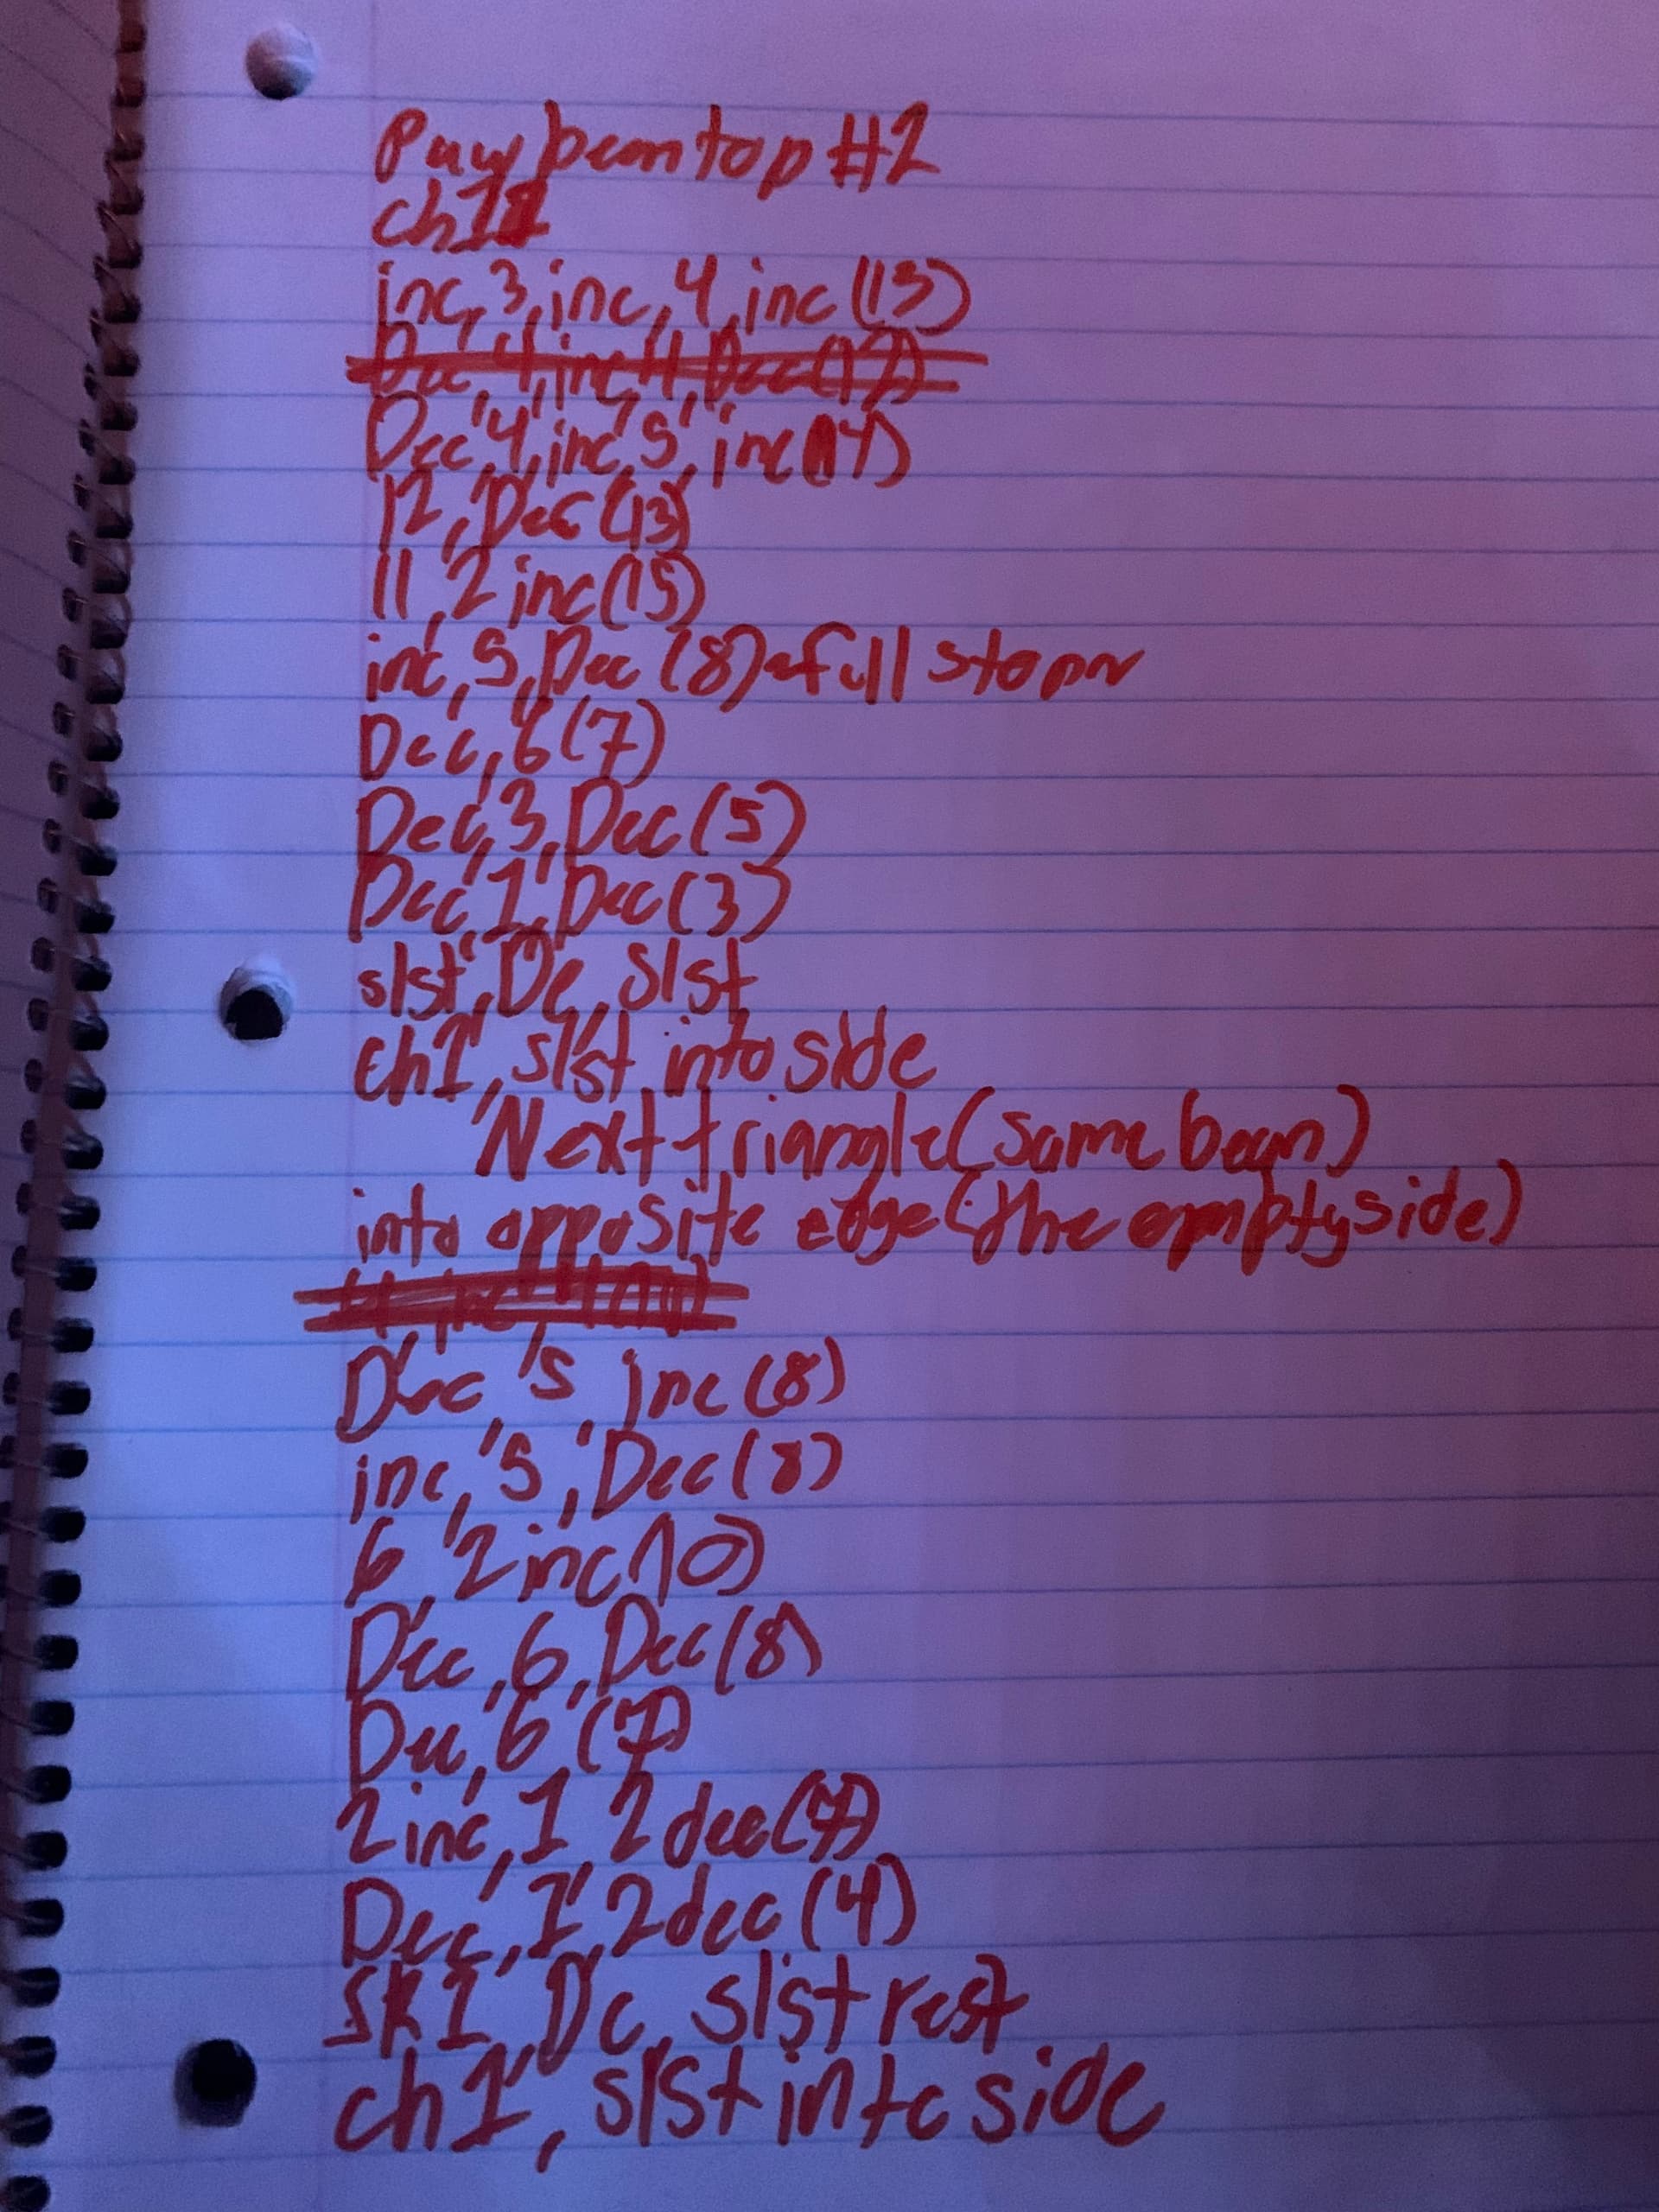 Paw bean top #2
ch11
inc, 3, inc, 4, inc (13)
Dec, 4, inc, 4, Dec (12)
Dec, 4, inc, 5, inc (14)
12, Dec (13)
11, 2 inc (15)
inc, 5, Dec (8) full stop
Dec, 6 (7)
Dec, 3, Dec (5)
Dec, 1, Dec (3)
slst, De, slst
ch1, slst into side
Next triangle (same bean)
into opposite edge (the empty side)
Dec, 5, inc (8)
inc, 5, Dec (8)
6, 2 inc (10)
Dec, 6, Dec (8)
Dec, 6 (7)
2 inc, 1, 2 dec (7)
Dec, 1, 2 dec (4)
SK1, Dc, slst rest
ch1, slst into side